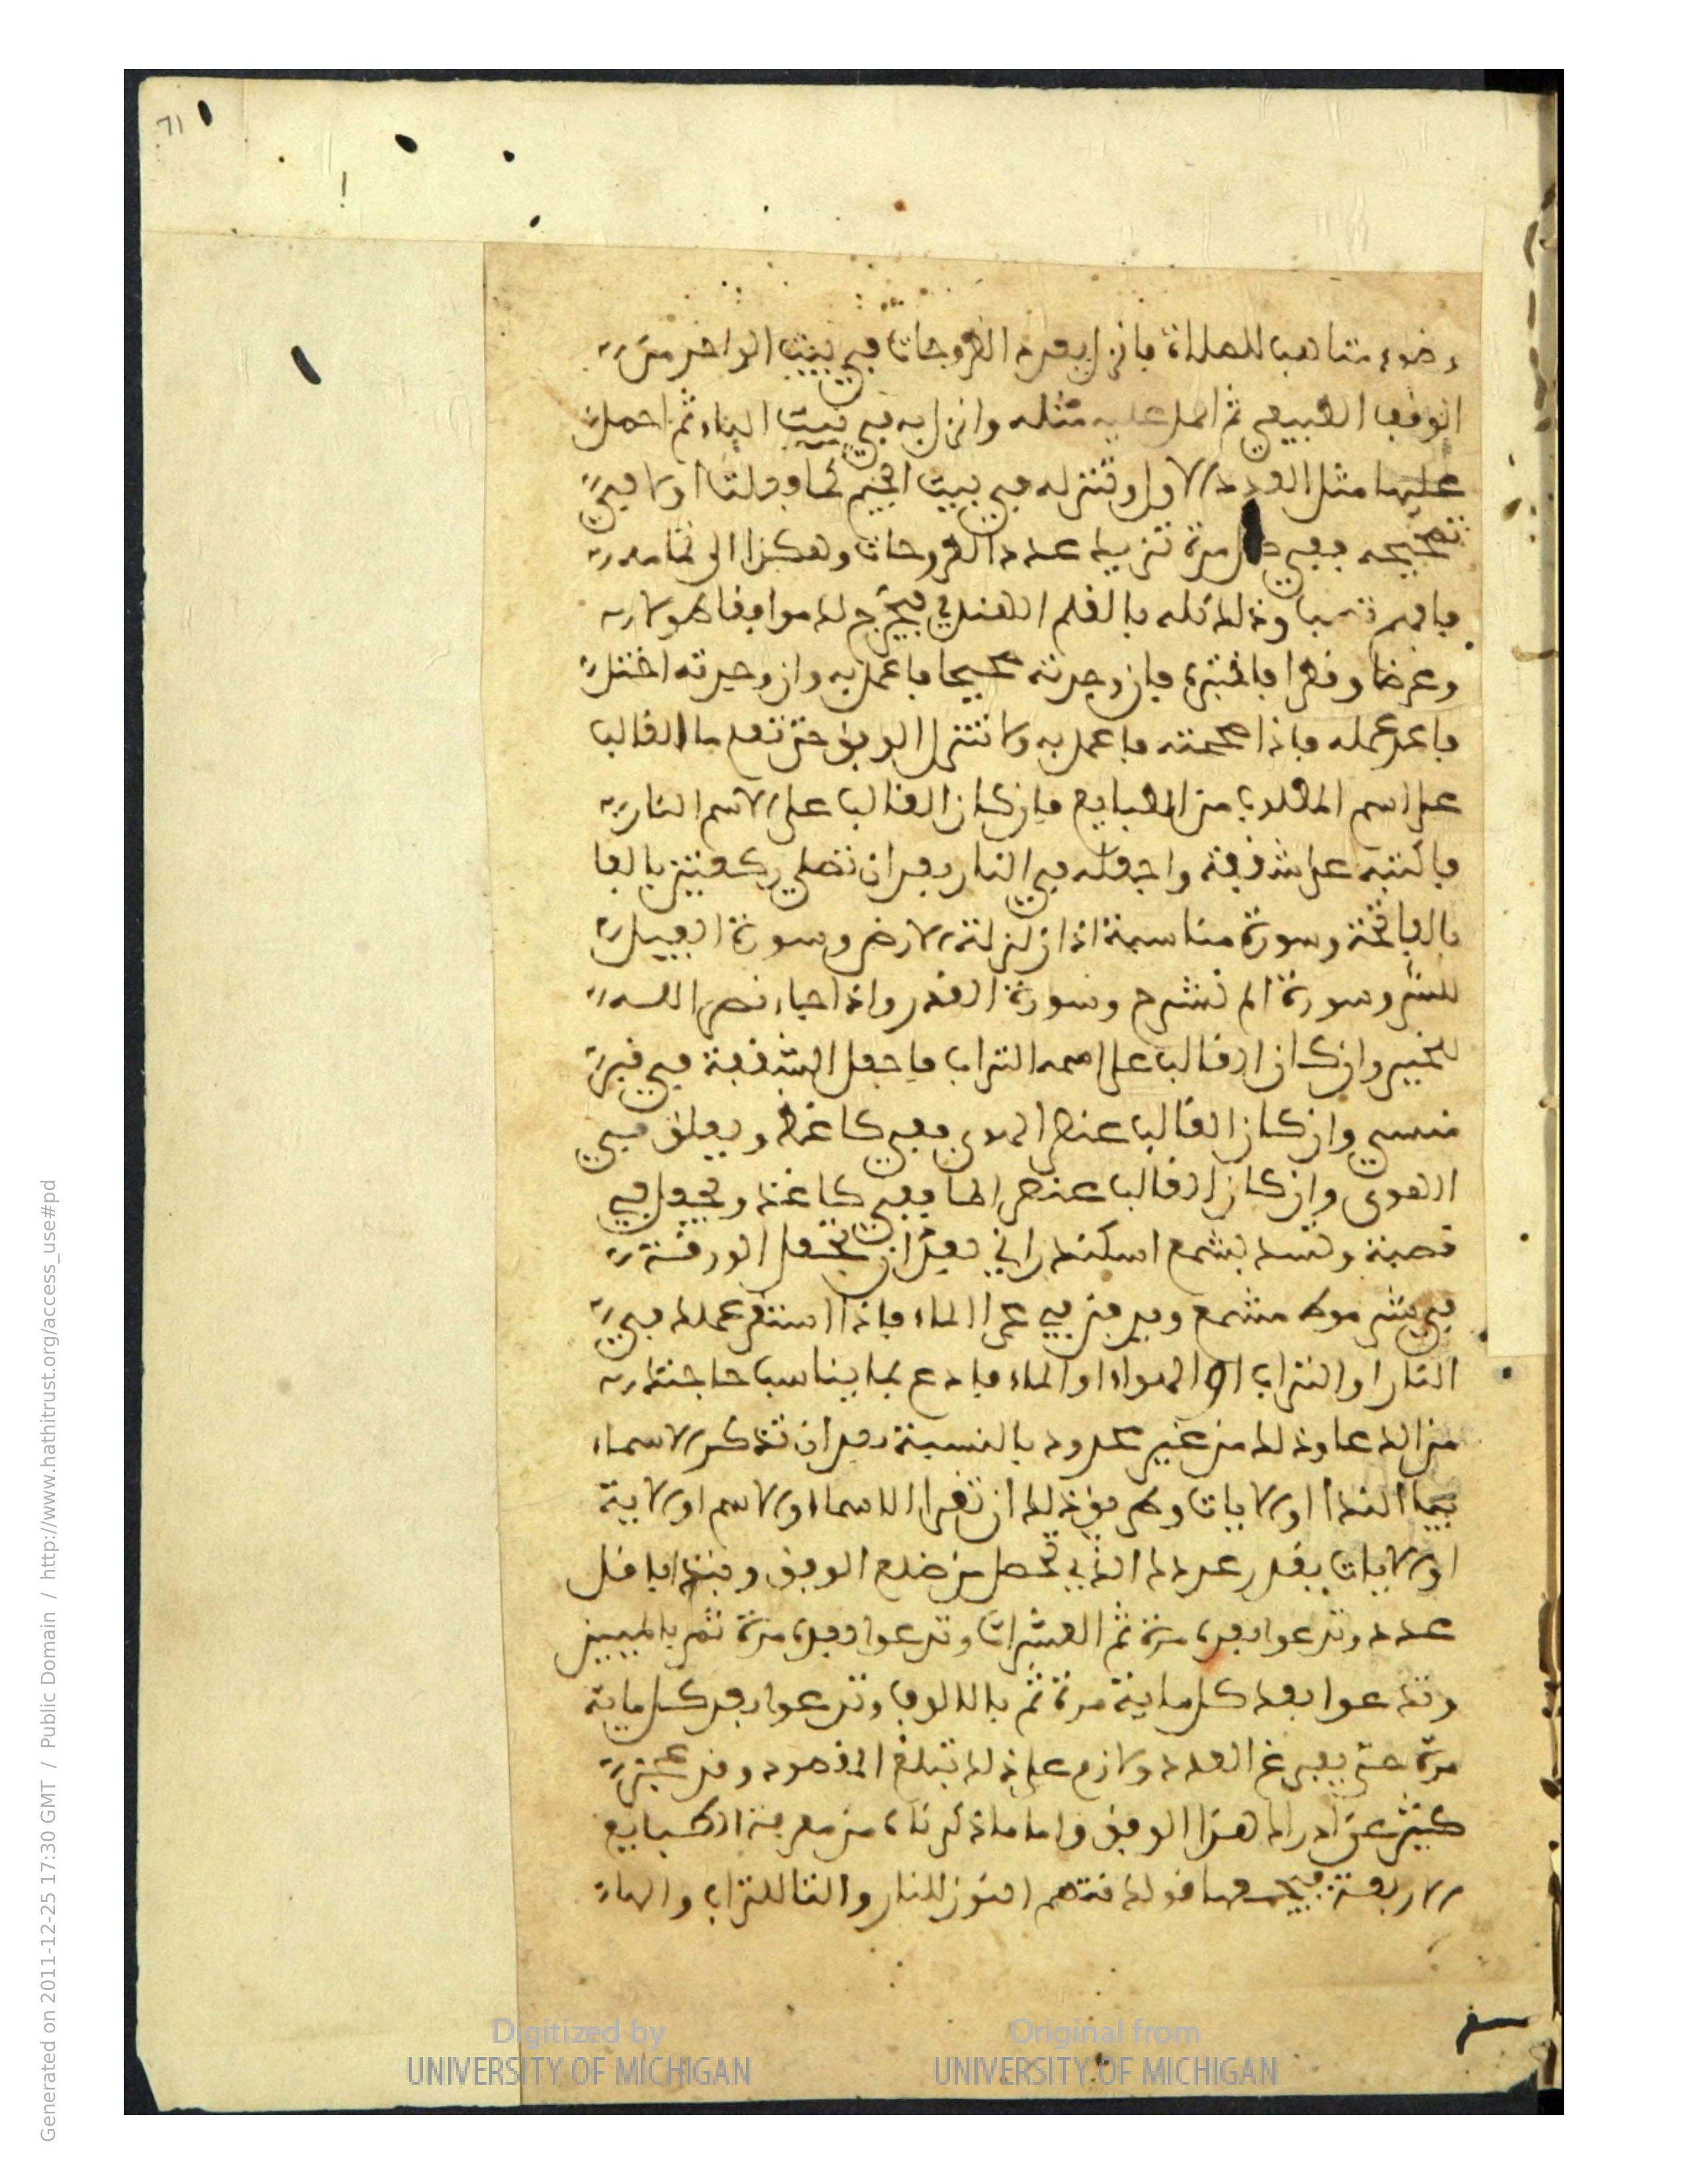 ٦١
وضوء متاهبا للصلاة فانزل بعدد الطروحات في بيت الواحد من
الوفق الطبيعي ثم احمل عليه مثله وانزل به في بيت الباء ثم احمل
عليهما مثل العدد الاول وتنزله في بيت الجيم كما فعلت اولا في
تصحيحه ففي كل مرة تزيد عدد الطروحات وهكذا الى تمامه
فافهم ترتيبا وذلك كله بالقلم الهندي فيخرج لك موافقا طولا
وعرضا وقطرا فاختبره فان وجدته صحيحا فاعمل به وان وجدته اختل
فاعد عمله فاذا صححته فاعمل به ولا تنزل الوفق حتى تعلم ما الغالب
على اسم المطلوب من الطبايع فان كان الغالب على الاسم النار
فاكتبه على شقفة واجعله في النار بعد ان تصلي ركعتين بالفا
بالفاتحة وسورة مناسبة اذا زلزلت الارض وسورة الفيل
للشر وسورة الم نشرح وسورة القدر واذا جاء نصر الله
للخير وان كان الغالب على اسمه التراب فاجعل الشقفة في قبر
منسي وان كان الغالب عنصر الهوى ففي كاغد ويعلق في
الهوى وان كان الغالب عنصر الما ففي كاغد وتجعل في
قصبة وتسد بشمع اسكندراني بعد ان تجعل الورقة
في مشمع ويدفن في مجرا الماء فاذا استقر عملك في
النار او التراب او الهواء او الماء فادع بما يناسب حاجتك
من الدعا وذلك من غير محدود بالنسبة بعد ان تذكر الاسماء
بيا الندا او الايات وطريق ذلك ان تقرا الاسماء او الاسم او الاية
او الايات بقدر عددك الذي تحصل من ضلع الوفق وتبتدا باقل
عدد وتدعوا بعده مرة ثم العشرات وتدعوا بعده مرة ثم بالميين
وتدعوا بعد كل ماية مرة ثم بالالوف وتدعوا بعد كل ماية
مرة حتى يفرغ العدد ولازم على ذلك تبلغ المقصود وقد عجز
كثير عن ادراك هذا الوفق واما ما ذكرناه من معرفة الطبايع
الاربعة فيجمعها قولك فتهم النون للنار والتا للتراب والهاء